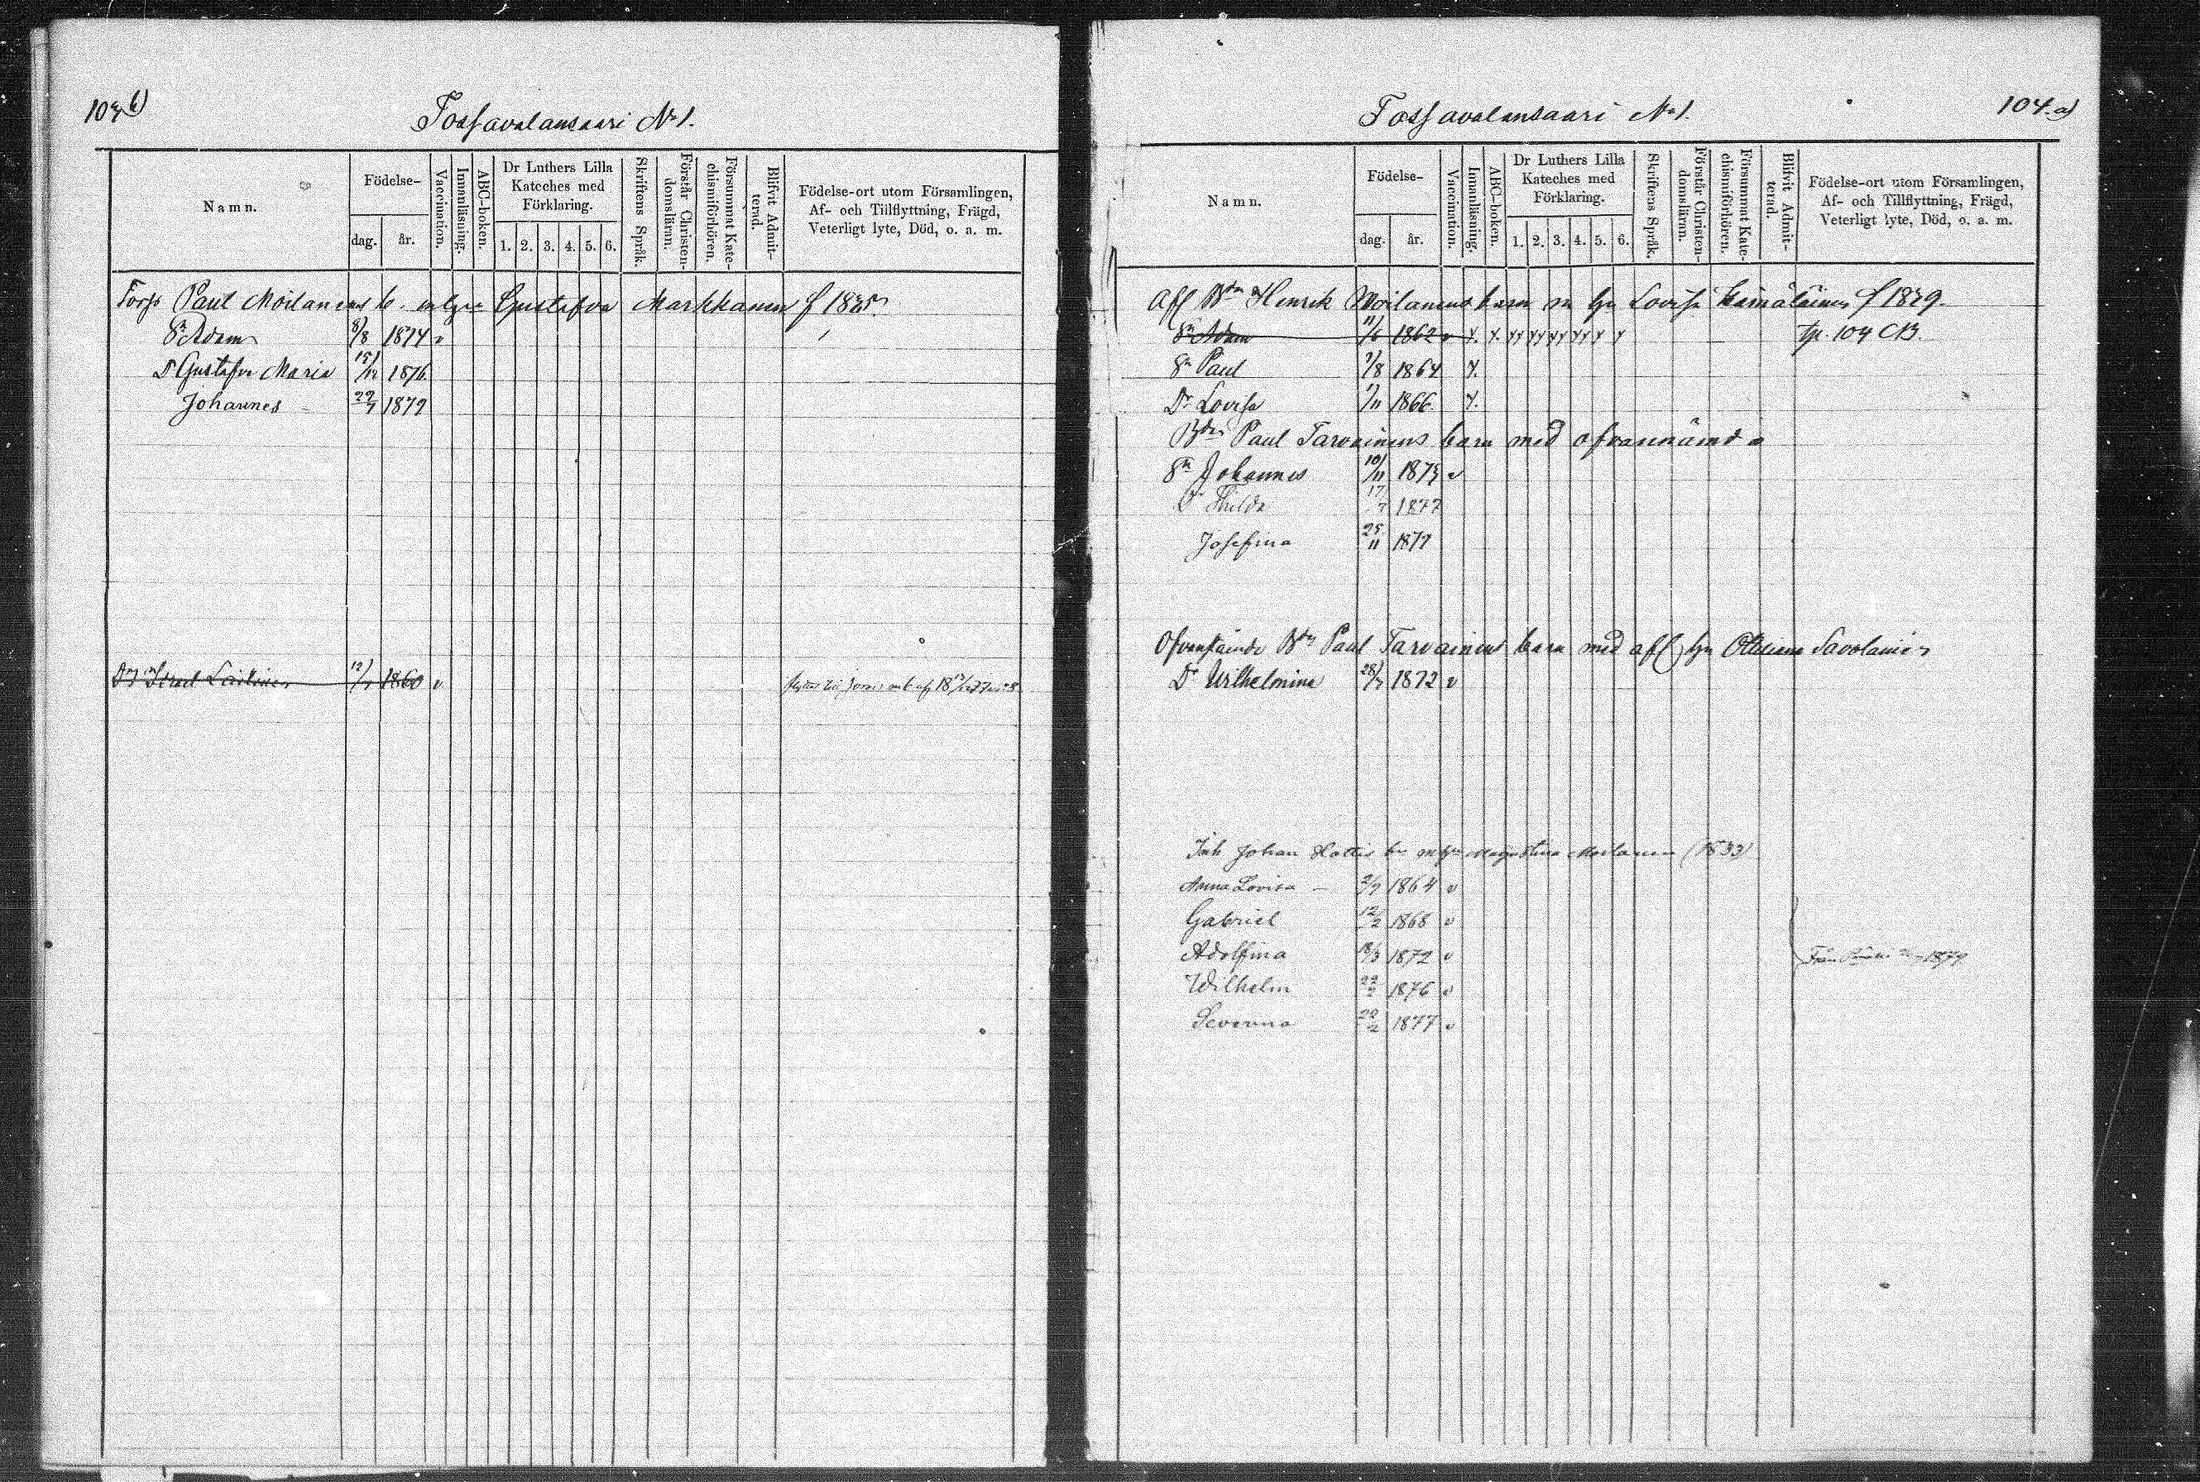 103 b)
Tossavalansaari No 1.
Namn.
Födelse-
dag.
år.
Vaccination.
Innanläsning.
ABC-boken.
Dr Luthers Lilla
Kateches med
Förklaring.
1. 2. 3. 4. 5. 6.
Skriftens Språk.
Förstår Christen-
domsläran.
Försummat Kate-
chismiförhören.
Blifvit Admit-
terad.
Födelse-ort utom Församlingen,
Af- och Tillflyttning, Frägd,
Veterligt lyte, Död, o. a. m.
Torp Paul Moilanens b. m hu Gustafva Markkanen f 1835.
Sn Adam 8/8 1874 v
Dr Gustafva Maria 15/12 1876.
Johannes 29/7 1879
Israel Laitinen 12/7 1860 v
104 a)
Tossavalansaari No 1.
Namn.
Födelse-
dag.
år.
Vaccination.
Innanläsning.
ABC-boken.
Dr Luthers Lilla
Kateches med
Förklaring.
1. 2. 3. 4. 5. 6.
Skriftens Språk.
Förstår Christen-
domsläran.
Försummat Kate-
chismiförhören.
Blifvit Admit-
terad.
Födelse-ort utom Församlingen,
Af- och Tillflyttning, Frägd,
Veterligt lyte, Död, o. a. m.
Afl Bdn Henrik Moilanens barn m hu Lovisa f 1829.
Sn Adam 11/6 1862 v tp. 104 CB.
Sn Paul 7/8 1864
Dr Lovisa 17/11 1866
Bdn Paul Tarvainens barn med ofvannämnda
Sn Johannes 10/11 1873 v
Dr Thilda 17/7 1877
Josefina 25/11 1879
Bdn Paul Tarvainens barn med afl hu Savolainen
Dr Wilhelmina 28/7 1872 v
Inh Johan m hu Moilanen (1833)
Anna Lovisa 2/7 1864 v
Gabriel 12/2 1868 v
Adolfina 18/3 1872 v
Från 1879
Wilhelm 22/2 1876 v
Severina 22/2 1877 v